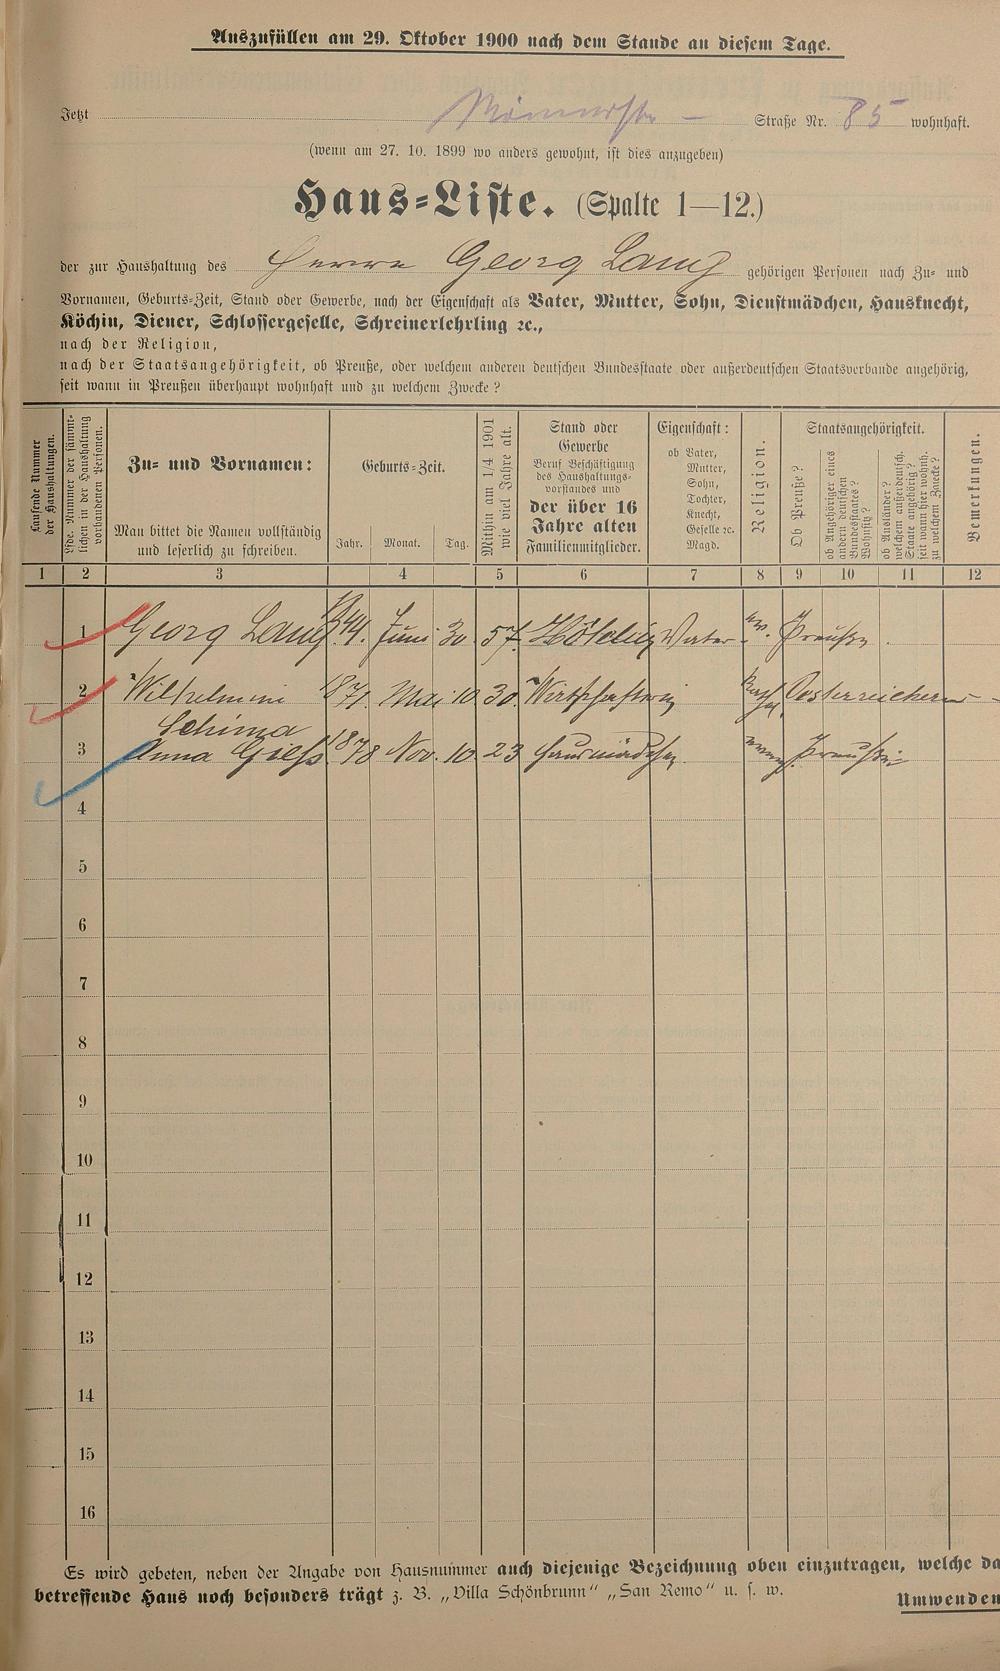 Auszufüllen am 29. Oktober 1900 nach dem Stande an diesem Tage.
Jetzt Straße Nr. 85 wohnhaft.
(wenn am 27. 10. 1899 wo anders gewohnt, ist dies anzugeben)
Haus-Liste. (Spalte 1—12.)
der zur Haushaltung des Herrn Georg Lang gehörigen Personen nach Zu- und
Vornamen, Geburts-Zeit, Stand oder Gewerbe, nach der Eigenschaft als Vater, Mutter, Sohn, Dienstmädchen, Hausknecht,
Köchin, Diener, Schlossergeselle, Schreinerlehrling ꝛc.,
nach der Religion,
nach der Staatsangehörigkeit, ob Preuße, oder welchem anderen deutschen Bundesstaate oder außerdeutschen Staatsverbande angehörig,
seit wann in Preußen überhaupt wohnhaft und zu welchem Zwecke?
Laufende Nummer der Haushaltungen.
Lfde. Nummer der sämmtlichen in der Haushaltung vorhandenen Personen.
Zu- und Vornamen:
Man bittet die Namen vollständig
und leserlich zu schreiben.
Geburts-Zeit.
Jahr. Monat. Tag.
Mithin am 1/4 1901
wie viel Jahre alt.
Stand oder
Gewerbe
Beruf Beschäftigung
des Haushaltungs-
vorstandes und
der über 16
Jahre alten
Familienmitglieder.
Eigenschaft:
ob Vater,
Mutter,
Sohn,
Tochter,
Knecht,
Geselle ꝛc.
Magd.
Religion.
Staatsangehörigkeit.
Ob Preuße?
ob Angehöriger eines
andern deutschen
Bundesstaates?
Wohnsitz?
ob Ausländer?
welchem außerdeutsch.
Staate angehörig?
seit wann hier wohnh.
zu welchem Zwecke?
Bemerkungen.
1 2 3 4 5 6 7 8 9 10 11 12
1 Georg Lang 1844. Juni 30. 57. Vater ev. Preuße
2 Wilhelmine 1871. Mai 10. 30. Kath. Oesterreicherin
Schima
3 Anna 1878 Nov. 10. 23 Hausmädchen evang. Preußin
4
5
6
7
8
9
10
11
12
13
14
15
16
Es wird gebeten, neben der Angabe von Hausnummer auch diejenige Bezeichnung oben einzutragen, welche da
betreffende Haus noch besonders trägt z. B. „Villa Schönbrunn“ „San Remo“ u. s. w.
Umwenden